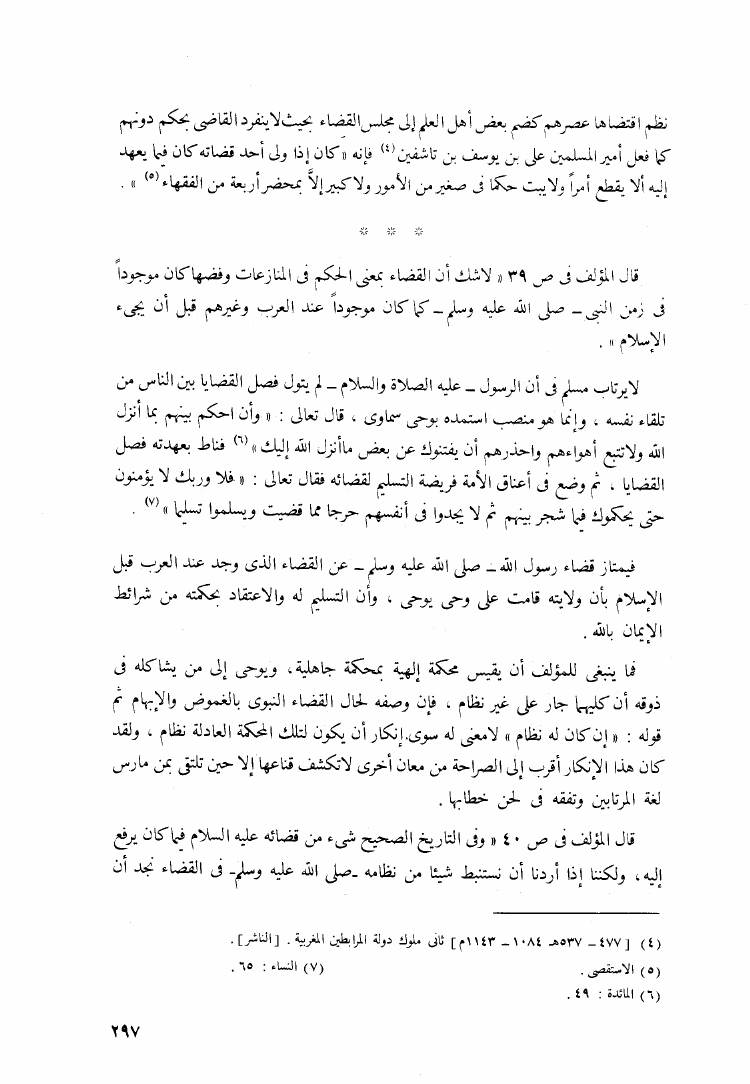 نظم اقتضاها عصرهم كضم بعض أهل العلم إلى مجلس القضاء بحيث لا ينفرد القاضى بحكم دونهم
كما فعل أمير المسلمين على بن يوسف بن تاشفين(٤) فإنه «كان إذا ولى أحد قضاته كان فيما يعهد
إليه ألا يقطع أمراً ولا يبت حكما فى صغير من الأمور ولا كبير إلاَّ بمحضر أربعة من الفقهاء(٥) » .
* * *
قال المؤلف فى ص ٣٩ « لاشك أن القضاء بمعنى الحكم فى المنازعات وفضها كان موجوداً
فى زمن النبى ـ صلى الله عليه وسلم ـ كما كان موجوداً عند العرب وغيرهم قبل أن يجىء
الإسلام » .
لا يرتاب مسلم فى أن الرسول ـ عليه الصلاة والسلام ـ لم يتول فصل القضايا بين الناس من
تلقاء نفسه ، وإنما هو منصب استمده بوحى سماوى ، قال تعالى : « وأن احكم بينهم بما أنزل
الله ولاتتبع أهواءهم واحذرهم أن يفتنوك عن بعض ماأنزل الله إليك»(٦) فناط بعهدته فصل
القضايا ، ثم وضع فى أعناق الأمة فريضة التسليم لقضائه فقال تعالى : « فلا وربك لا يؤمنون
حتى يحكموك فيما شجر بينهم ثم لا يجدوا فى أنفسهم حرجا مما قضيت ويسلموا تسليما»(٧) .
فيمتاز قضاء رسول الله ـ صلى الله عليه وسلم ـ عن القضاء الذى وجد عند العرب قبل
الإسلام بأن ولايته قامت على وحى يوحى ، وأن التسليم له والاعتقاد بحكمته من شرائط
الإيمان بالله .
فما ينبغى للمؤلف أن يقيس محكمة إلهية بمحكمة جاهلية، ويوحى إلى من يشاكله فى
ذوقه أن كليهما جار على غير نظام ، فإن وصفه لحال القضاء النبوى بالغموض والإبهام ثم
قوله : « إن كان له نظام » لامعنى له سوى إنكار أن يكون لتلك المحكمة العادلة نظام ، ولقد
كان هذا الإنكار أقرب إلى الصراحة من معان أخرى لاتكشف قناعها إلا حين تلتقى بمن مارس
لغة المرتابين وتفقه فى لحن خطابها .
قال المؤلف فى ص ٤٠ « وفى التاريخ الصحيح شىء من قضائه عليه السلام فيما كان يرفع
إليه، ولكننا إذا أردنا أن نستنبط شيئا من نظامه ـصلى الله عليه وسلمـ فى القضاء نجد أن
(٤) [ ٤٧٧ ـ ٥٣٧هـ ١٠٨٤ ـ ١١٤٣م] ثانى ملوك دولة المرابطين المغربية . [الناشر] .
(٥) الاستقصى .
(٧) النساء : ٦٥ .
(٦) المائدة : ٤٩ .
٢٩٧